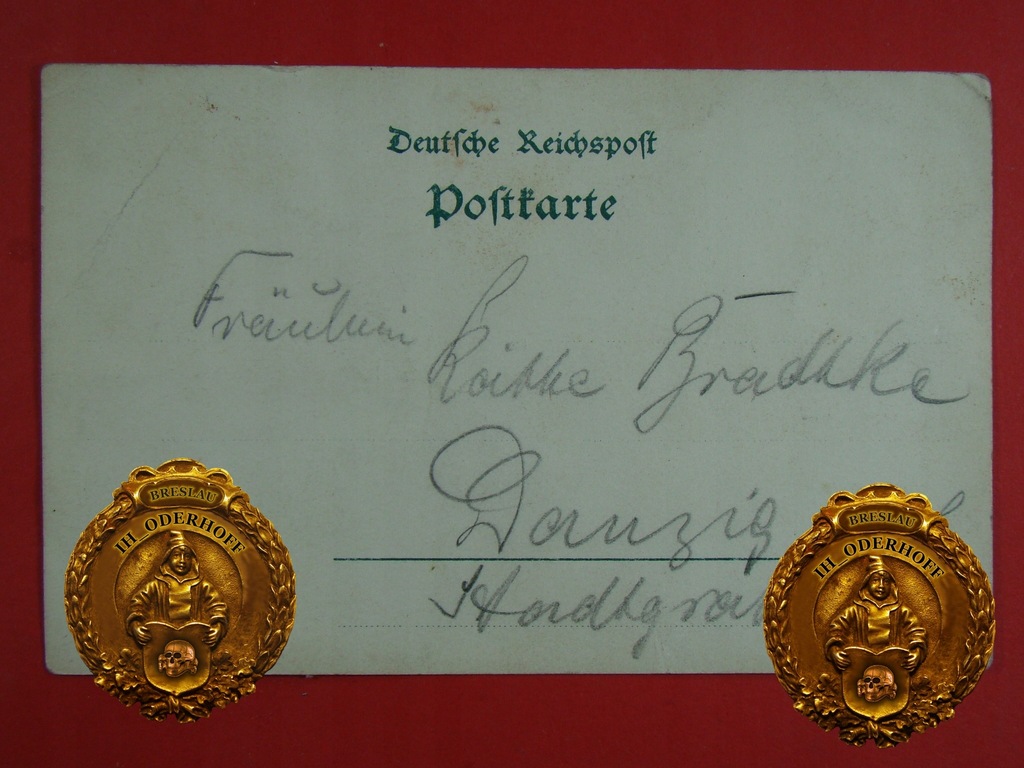 Deutsche Reichspost
Postkarte
Fräulein
Käthe Bradtke
Danzig
Stadtgra
BRESLAU
IH_ODERHOFF
BRESLAU
IH_ODERHOFF